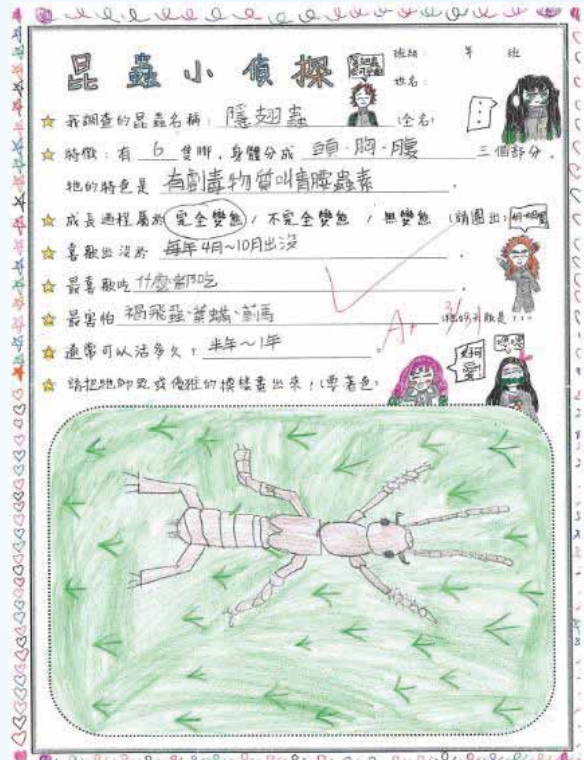 昆蟲小偵探
班級: 年 班
姓名:
☆ 我調查的昆蟲名稱: 隱翅蟲 (全名)
☆ 特徵:有 6 隻腳,身體分成 頭·胸·腹 三個部分。
牠的特色是 有劇毒物質叫青腰蟲素 。
☆ 成長過程屬於 完全變態 / 不完全變態 / 無變態 (請圈出)
☆ 喜歡出沒於 每年4月~10月出沒 。
☆ 最喜歡吃 什麼都吃 。
☆ 最害怕 褐飛蝨·葉蟎·薊馬
A+
☆ 通常可以活多久? 半年~1年 。
好可愛!
嘿嘿
☆ 請把牠帥氣或優雅的模樣畫出來!(要著色)